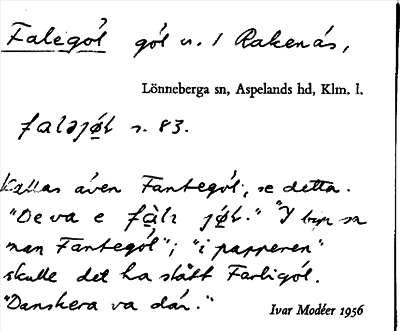 Falegöl göl n. / Rakenäs,
Lönneberga sn, Aspelands hd, Klm. l.
faləjø̀l s. 83.
Kallas även Fantegöl, se detta.
"De va e fàlı jǿl." "I byn sa
man Fantegöl"; "i papperen"
skulle det ha stått Farligöl.
"Danskera va där."
Ivar Modéer 1956